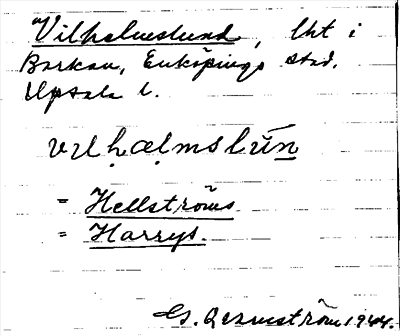 Vilhelmslund, lht i
Barkan, Enköpings stad.
Upsala l.
vɪlhælmslun
= Hellströms
= Harrys.
G. 1944.